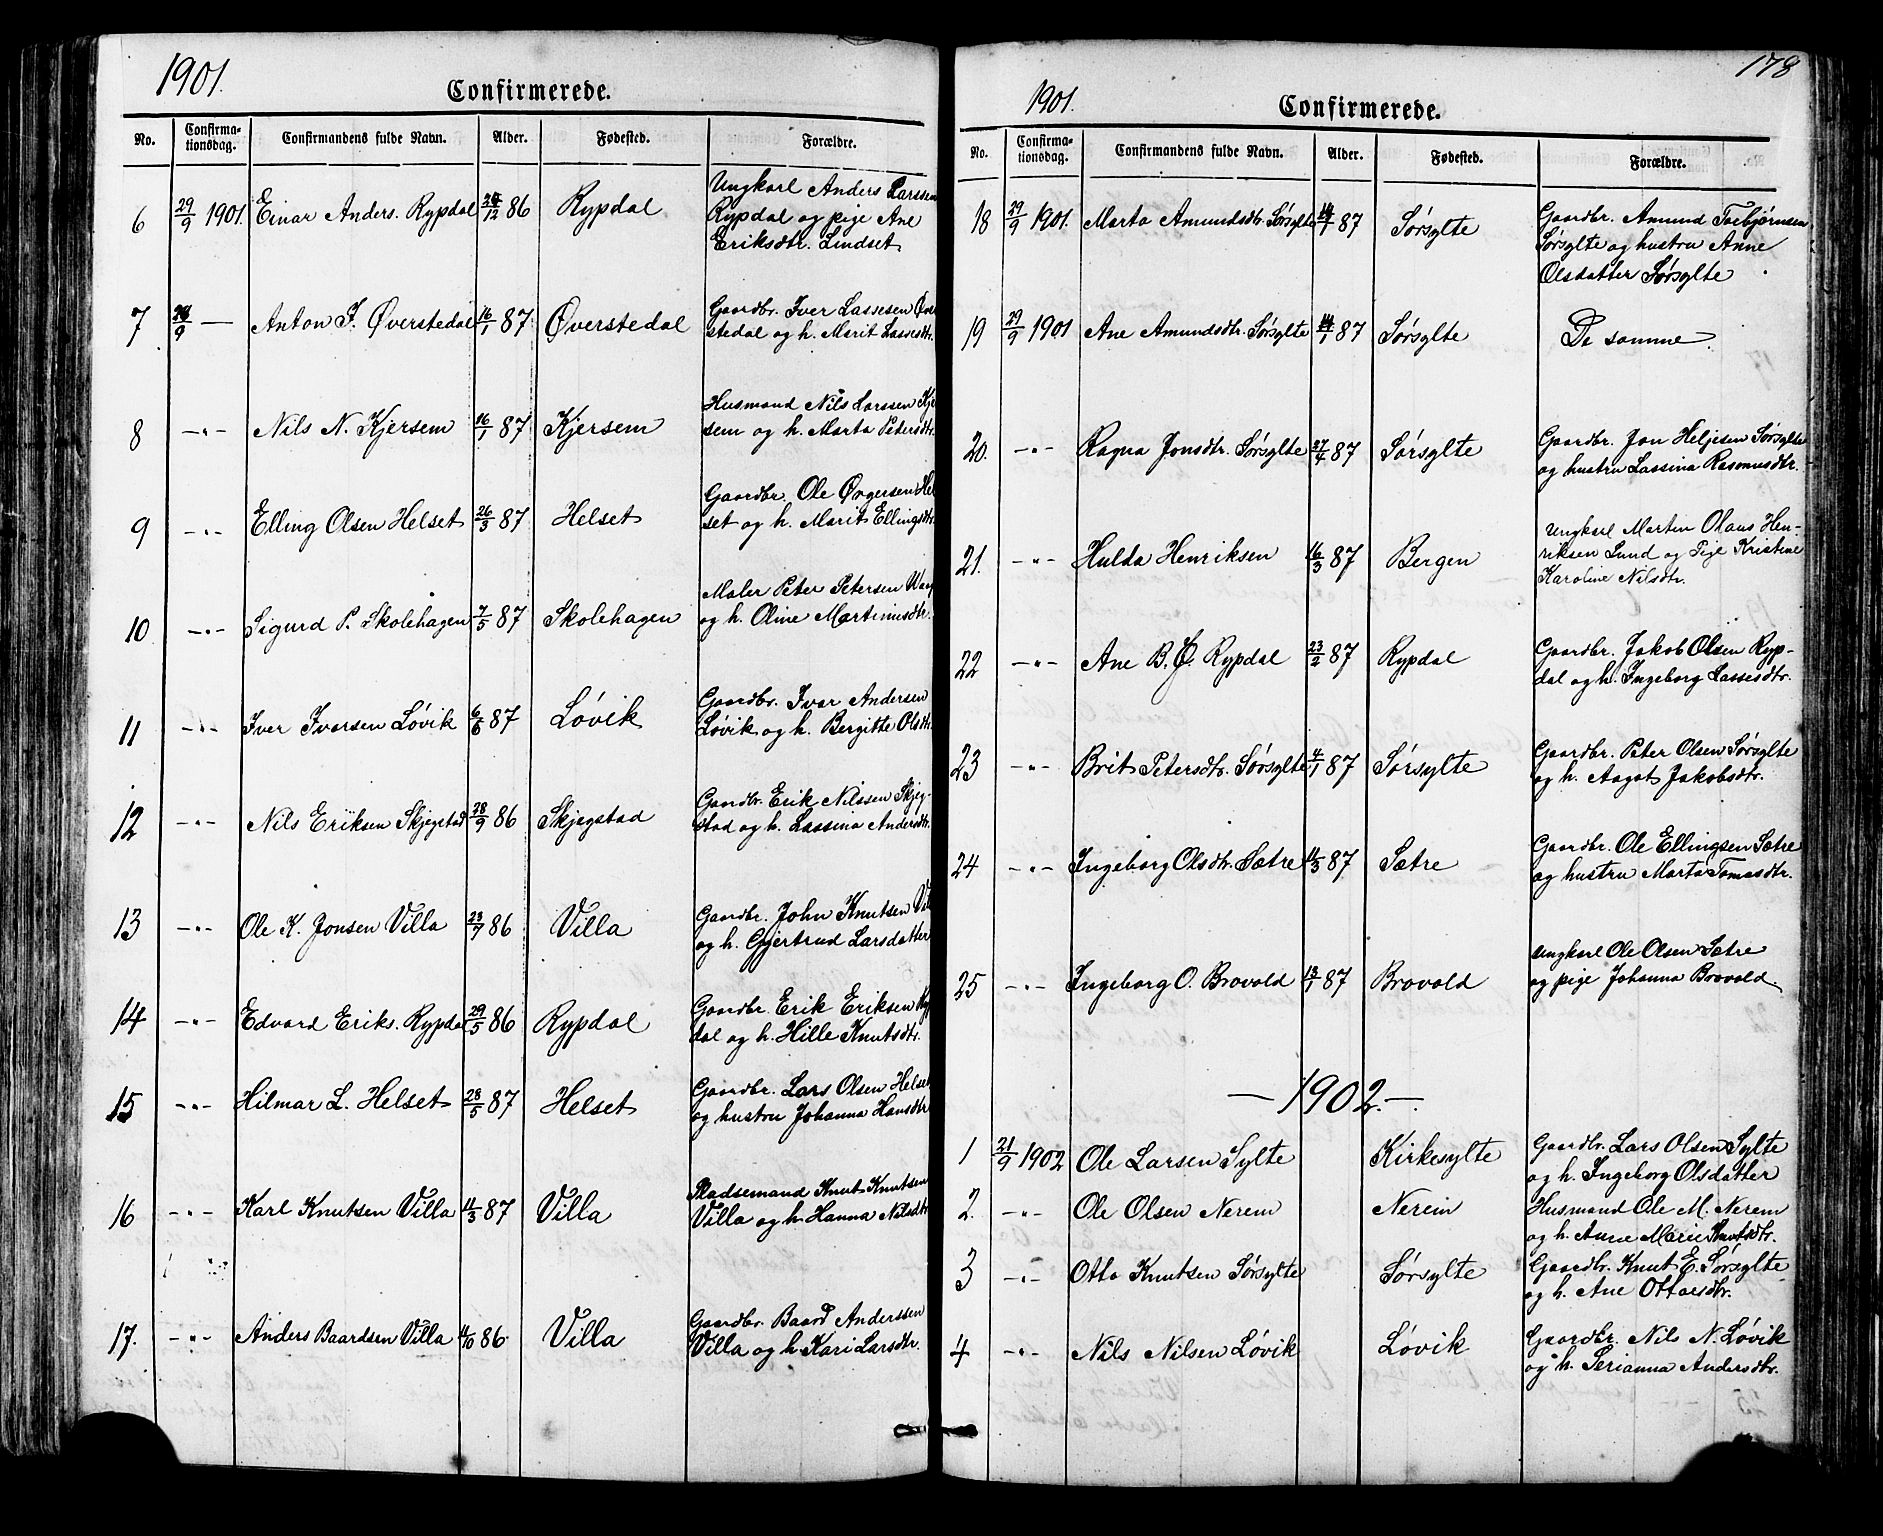 1901.
Confirmerede.
No. Confirma-tionsdag. Confirmandens fulde Navn. Alder. Fødested. Forældre.
6 29/9 1901. Einar Anders. Rypdal /12 86 Rypdal Ungkarl Anders Larssen
Rypdal og pige Ane
Eriksdtr. Lindset
7 29/9 — Anton I. Øverstedal 16/1 87 Øverstedal Gaardbr. Iver Lassesen Øver
stedal og h. Marit Lassesdtr.
8 —"— Nils N. Kjersem 16/1 87 Kjersem Husmand Nils Larssen Kjer
sem og h. Marta Petersdtr.
9 —"— Elling Olsen Helset 26/3 87 Helset Gaardbr. Ole Hel
set og h. Marit Ellingsdtr.
10 —"— Sigurd P. Skolehagen 7/5 87 Skolehagen Maler Peter Petersen
og h. Oline Martinusdtr.
11 —"— Iver Ivarsen Løvik 6/6 87 Løvik Gaardbr. Ivar Andersen
Løvik og h. Bergitte Olsdtr.
12 —"— Nils Eriksen Skjegstad 28/9 86 Skjegstad Gaardbr. Erik Nilssen Skjeg-
stad og h. Lassina Andersdtr.
13 —"— Ole K. Jonsen Villa 23/7 86 Villa Gaardbr. John Knutsen Vil
og h. Gjertrud Larsdatter
14 —"— Edvard Eriks. Rypdal 29/5 86 Rypdal Gaardbr. Erik Eriksen Ryp
dal og h. Hille Knutsdtr.
15 —"— Hilmar L. Helset 28/5 87 Helset Gaardbr. Lars Olsen Helset
og hustru Johanna Hansdtr
16 —"— Karl Knutsen Villa 11/3 87 Villa Pladsemand Knut Knutsen
Villa og h. Hanna Nilsdtr
17. —"— Anders Baardsen Villa 11/10 86. Villa Gaardbr. Baard Anderssen
Villa og h. Kari Larsdtr.
178
1901.
Confirmerede.
No. Confirma-tionsdag. Confirmandens fulde Navn. Alder. Fødested. Forældre.
18 29/9 1901. Marta Amundsdtr. Sørsylte 14/1 87 Sørsylte Gaardbr. Amund Torbjørnsen
Sørsylte og hustru Anne
Olsdatter Sørsylte
19 29/9 1901 Ane Amundsdtr. Sørsylte 14/1 87 Sørsylte De samme.
20. —"— Ragna Jonsdtr. Sørsylte 27/4 87 Sørsylte Gaardbr. Jon Heljesen Sørsylte
og hustru Lassina Rasmusdtr.
21. —"— Hulda Henriksen 16/3 87 Bergen Ungkarl Martin Olaus Hen-
riksen Lund og Pige Kristine
Karoline Nilsdtr.
22 —"— Ane B. Rypdal 23/2 87 Rypdal Gaardbr. Jakob Olsen Ryp-
dal og h. Ingeborg Lassesdtr.
23 —"— Brit Petersdtr. Sørsylte 4/1 87 Sørsylte Gaardbr. Peter Olsen Sørsylte
og h. Aagot Jakobsdtr.
24 —"— Ingeborg Olsdtr. Sætre 11/3 87 Sætre Gaardbr. Ole Ellingsen Sætre
og hustru Marta Tomasdtr.
25 —"— Ingeborg O. Brovold 13/1 87 Brovold Ungkarl Ole Olsen Sætre
og pige Johanna Brovold.
— 1902. —
1 21/9 1902 Ole Larsen Sylte Kirkesylte Gaardbr. Lars Olsen Sylte
og h. Ingeborg Olsdatter
2. —"— Ole Olsen Nerem Nerem Husmand Ole M. Nerem
og h. Anne Marie Knutsdtr.
3 —"— Otto Knutsen Sørsylte Sørsylte Gaardbr. Knut E. Sørsylte
og h. Ane Ottoesdtr.
4 —"— Nils Nilsen Løvik Løvik Gaardbr. Nils N. Løvik
og h. Serianna Andersdtr.